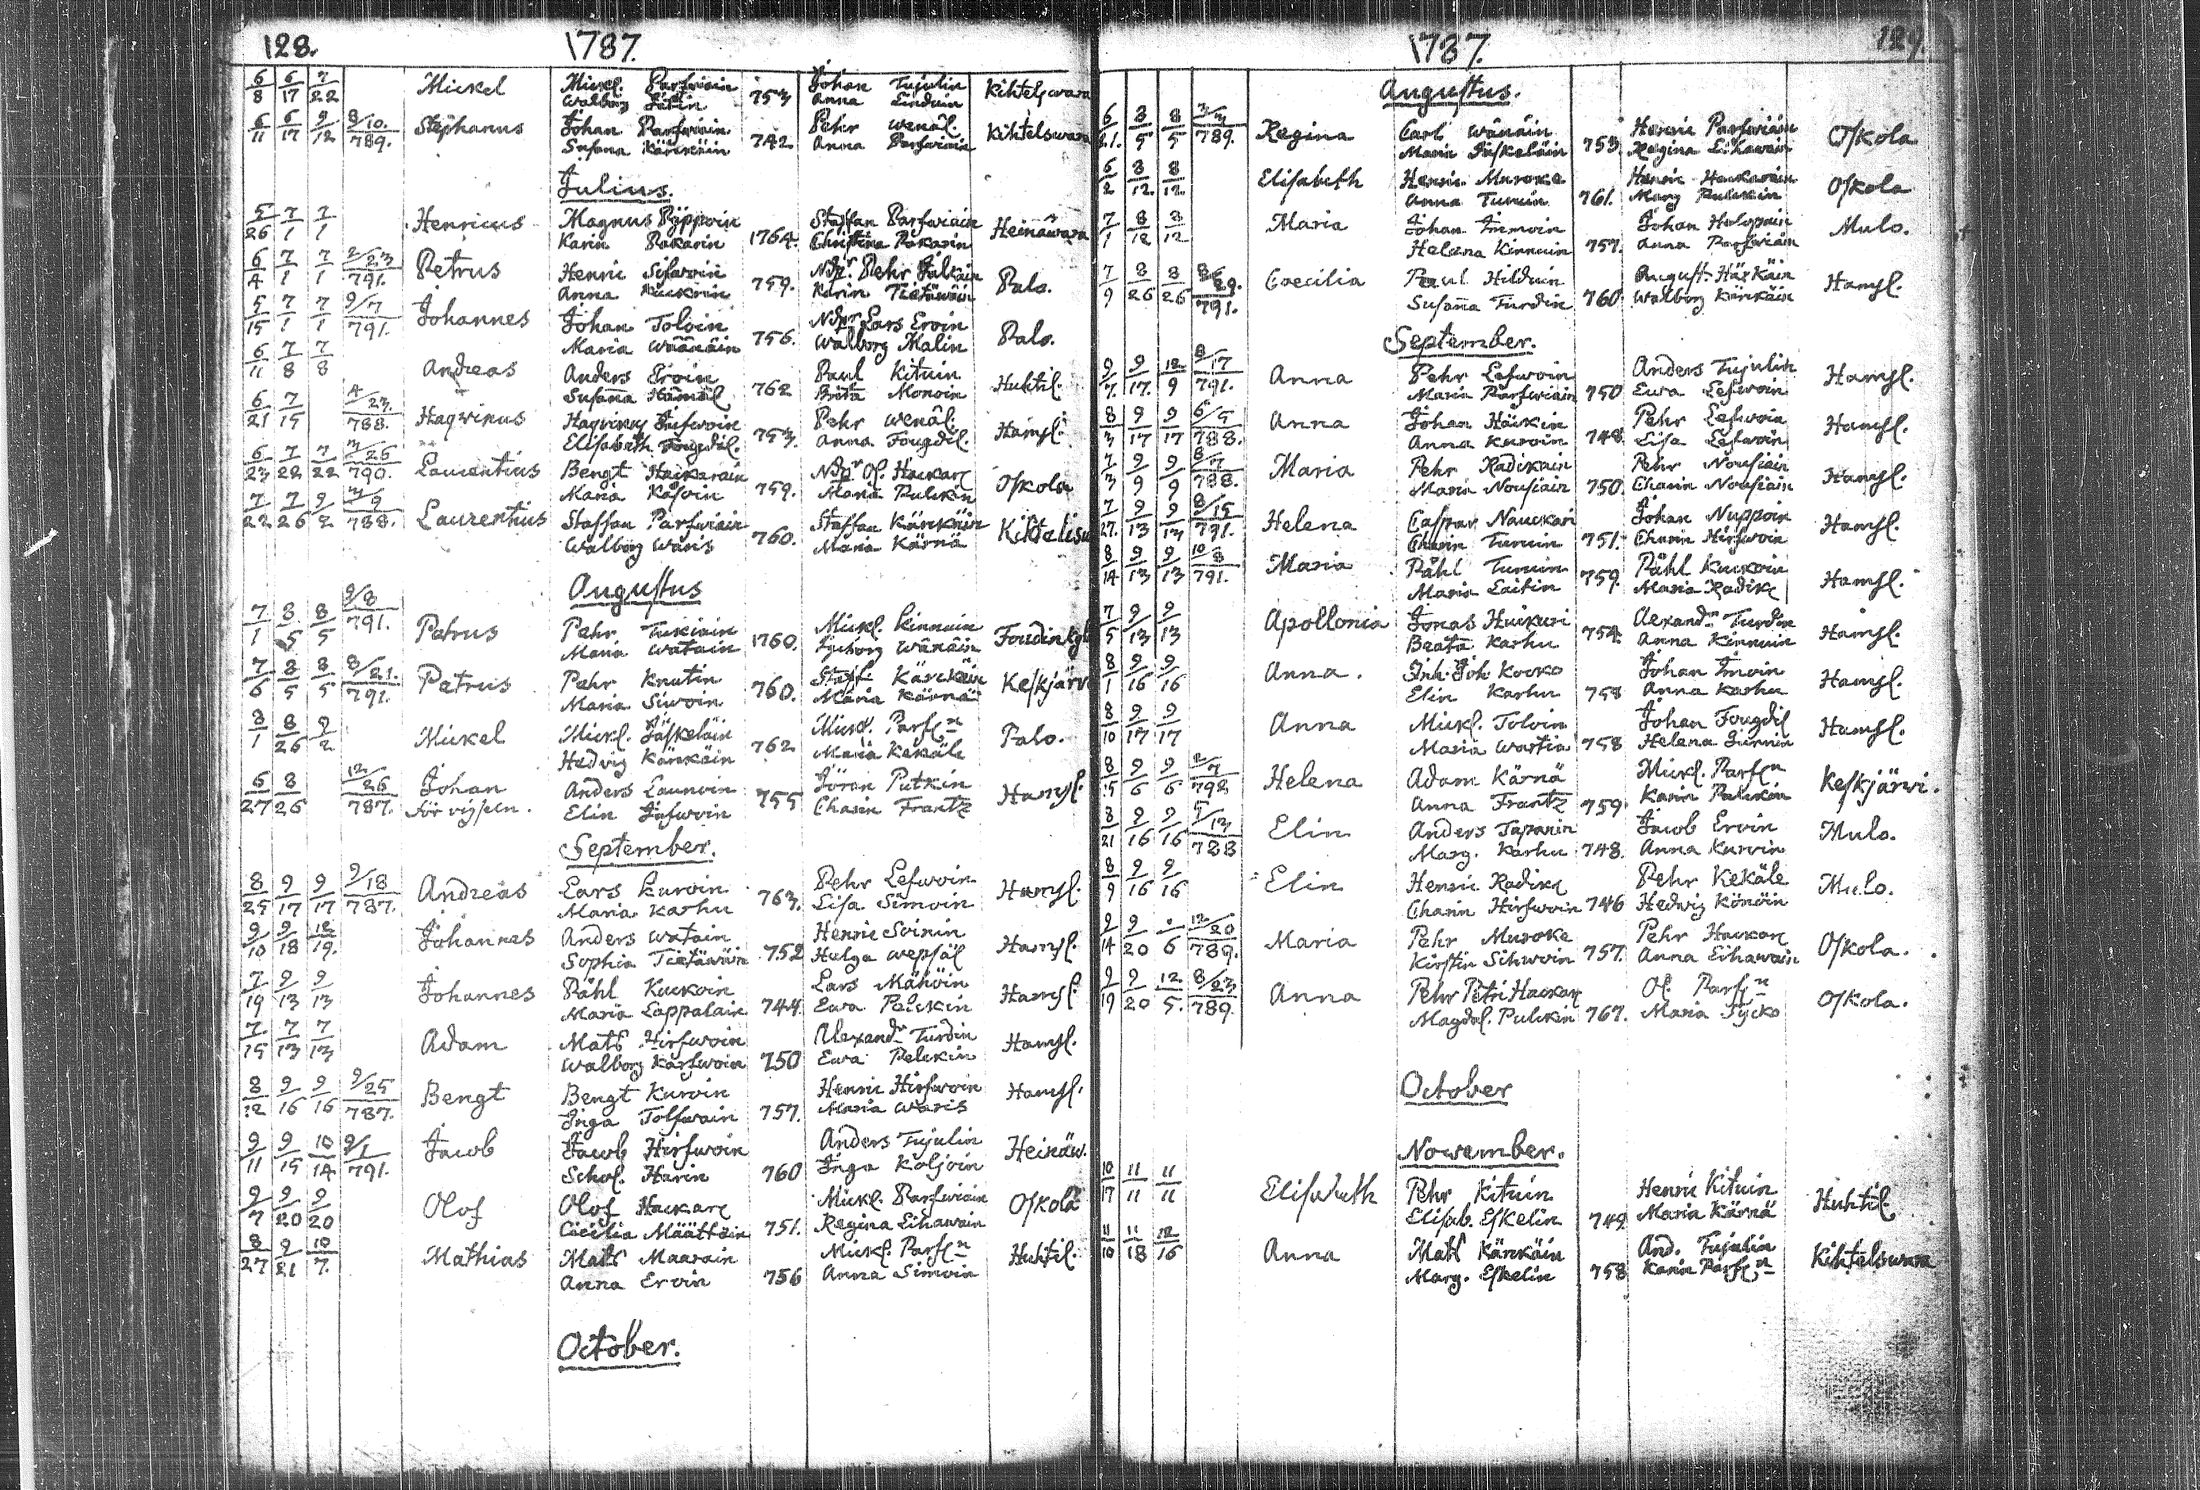 128. 1787.
6/8 6/17 7/22 Mickel Mickl. Parfwiain 753 Johan Tujulin Kihtelswara
Walborg Anna
6/11 6/17 9/12 8/10 789. Stephanus Johan Parfwiain 742 Pehr Wenäl Kihtelswara
Susana Kärckäin Anna Parfwiain
Julius.
5/26 7/1 7/1 Henricus Magnus Pöppöin Staffan Parfwiain Heinäwara
Karin Pakarin 1764. Christina Pakarin
6/4 7/1 7/1 2/23 791. Petrus Henric Sifwoin Ndr. Pehr Palo.
Anna Kuckoin 759. Karin Tietäwäin
5/15 7/1 7/1 9/7 791. Johannes Johan Tolvin Ndr Lars Ervin Palo.
Maria Wäänäin 756. Walborg Malin
6/11 7/8 7/8 Andreas Anders Ervin Paul Kituin Huhtil.
Susana Hämäl 762 Brita Monoin
6/21 7/15 4/23. 788. Haqvinus Haqvinus Pehr Wenäl. Hamsl.
Elisabeth Fougdil. 753. Anna Fougdil.
6/23 7/22 7/22 3/26 790. Laurentius Bengt Hackarain Ndr Ol. Hackar Oskola
Maria 759. Maria Pulckin
7/22 7/26 9/2 3/9 788. Laurentius Staffan Parfwiain Staffan Kärckäin Kihtelisw
Walborg Waris 760. Maria Kärnä
Augustus
7/1 8/5 8/5 9/8 791. Petrus Pehr Tukiain Mickl. Kinnuin
Maria Watain 1760. Wänäin
7/6 8/5 8/5 8/21. 791. Petrus Pehr Knutin Staff. Kärckäin Keskjärv
Maria Siwoin 760. Maria Kärnä
8/1 8/26 9/2 Mickel Mickl. Jäskeläin Mickl. Parfn Palo.
Hedvig Kärckäin 762 Maria Kekäle
6/27 8/26 12/26 787. Johan Anders Launoin Jöran Putkin Hamsl.
för vissen. Elin 755 Charin Frantz
September.
8/25 9/17 9/17 9/18 787. Andreas Lars Kurvin Pehr Lefwoin Hamsl.
Maria Karhu 763. Lisa Simoin
9/10 9/18 12/19. Johannes Anders Watain Henric Soinin Hamsl.
Sophia Tietäwäin 752 Helga Wepsäl
7/19 9/13 9/13 Johannes Påhl Kuckoin Lars Mähöin Hamsl.
Maria Lappalain 744. Ewa Pelckin
7/15 7/13 7/13 Adam Mats Hirfwoin Alexandr Turdin Hamsl.
Walborg Karfwoin 750 Ewa Pelckin
8/12 9/16 9/16 9/25 787. Bengt Bengt Kurvin Henric Hirfwoin Hamsl.
Inga Tolfwain 757. Maria Waris
9/11 9/15 10/14 9/1 791. Jacob Jacob Hirfwoin Anders Tujulin Heinäw.
Schol. Harin 760 Inga Koljoin
9/7 9/20 9/20 Olof Olof Hackar Mickl. Parfwiain Oskola
Cecilia Määttäin 751. Regina Eihawain
8/27 9/21 10/7. Mathias Mats Maarain Mickl. Parfn Huhtil.
Anna Ervin 756 Anna Simoin
October.
1787. 129.
Augustus.
8/5 8/5 3/3 789. Regina Carl Wänäin Henric Parfwiain Oskola
Maria Jäskeläin 753 Regina Eihawain
6/2 8/12 8/12 Elisabeth Henric Muroke Henric Hackarain Oskola
Anna Turuin 761. Marg Pulckin
7/1 8/12 8/12 Maria Johan Immoin Johan Holopain Mulo.
Helena Kinnuin 757. Anna Parfwiain
7/9 8/26 8/26 791. Caecilia Paul Hilduin August. Härkäin Hamsl.
Susana Turdin 760 Walborg Kärckäin
September.
9/7. 9/17. 12/9 8/17 791. Anna Pehr Lefwoin Anders Tujulin Hamsl.
Maria Parfwiain 750 Ewa Lefwoin
8/3 9/17 9/17 6/5 788. Anna Johan Häikin Pehr Lefwoin Hamsl.
Anna Kurvin 748 Lisa Lefwoin
7/3 9/9 9/9 8/7 788. Maria Pehr Radikain Pehr Nousiain Hamsl.
Maria Nousiain 750. Charin Nousiain
7/27. 9/13 9/13 8/15 791. Helena Caspar Nauckari Johan Nuppoin Hamsl.
Charin Turuin 751. Charin Hirfwoin
8/14 9/13 9/13 10/8 791. Maria Påhl Turuin Påhl Kuckoin Hamsl.
Maria Laitin 759. Maria Radik
7/5 9/13 9/13 Apollonia Jonas Huickuri Alexandr Turdin Hamsl.
Beata Karhu 754. Anna Kinnuin
8/1 9/16 9/16 Anna. Inh. Joh Kocko Johan Imoin Hamsl.
Elin Karhu 758 Anna Karhu
8/10 9/17 9/17 Anna Mickl. Tolvin Johan Fougdil Hamsl.
Maria Wartia 758 Helena Surnin
8/15 9/6 9/6 2/7 792 Helena Adam Kärnä Mickl. Parfn Keskjärwi.
Anna Frantz 759 Karin Pulckin
8/21 9/16 9/16 5/13 788 Elin Anders Tapanin Jacob Ervin Mulo.
Marg. Karhu 748. Anna Kurvin
8/9 9/16 9/16 Elin Henric Radik Pehr Kekäle Mulo.
Charin Hirfwoin 746 Hedwig Könöin
9/14 9/20 6 12/20 789. Maria Pehr Muroke Pehr Hackar Oskola.
Kirstin Sihvoin 757. Anna Eihawain
9/19 9/20 12/5. 8/23 789. Anna Pehr Petri Hackar Ol. Parfn Oskola.
Magdal. Pulckin 767. Maria Tycko
October
November.
10/17 11/11 11/11 Elisabeth Pehr Kituin Henric Kituin Huhtil.
Elisab. Eskelin 749 Maria Kärnä
11/10 11/18 12/16 Anna Mats Kärckäin And. Tujulin Kihtelswara
Marg. Eskelin 758 Karin Parfn